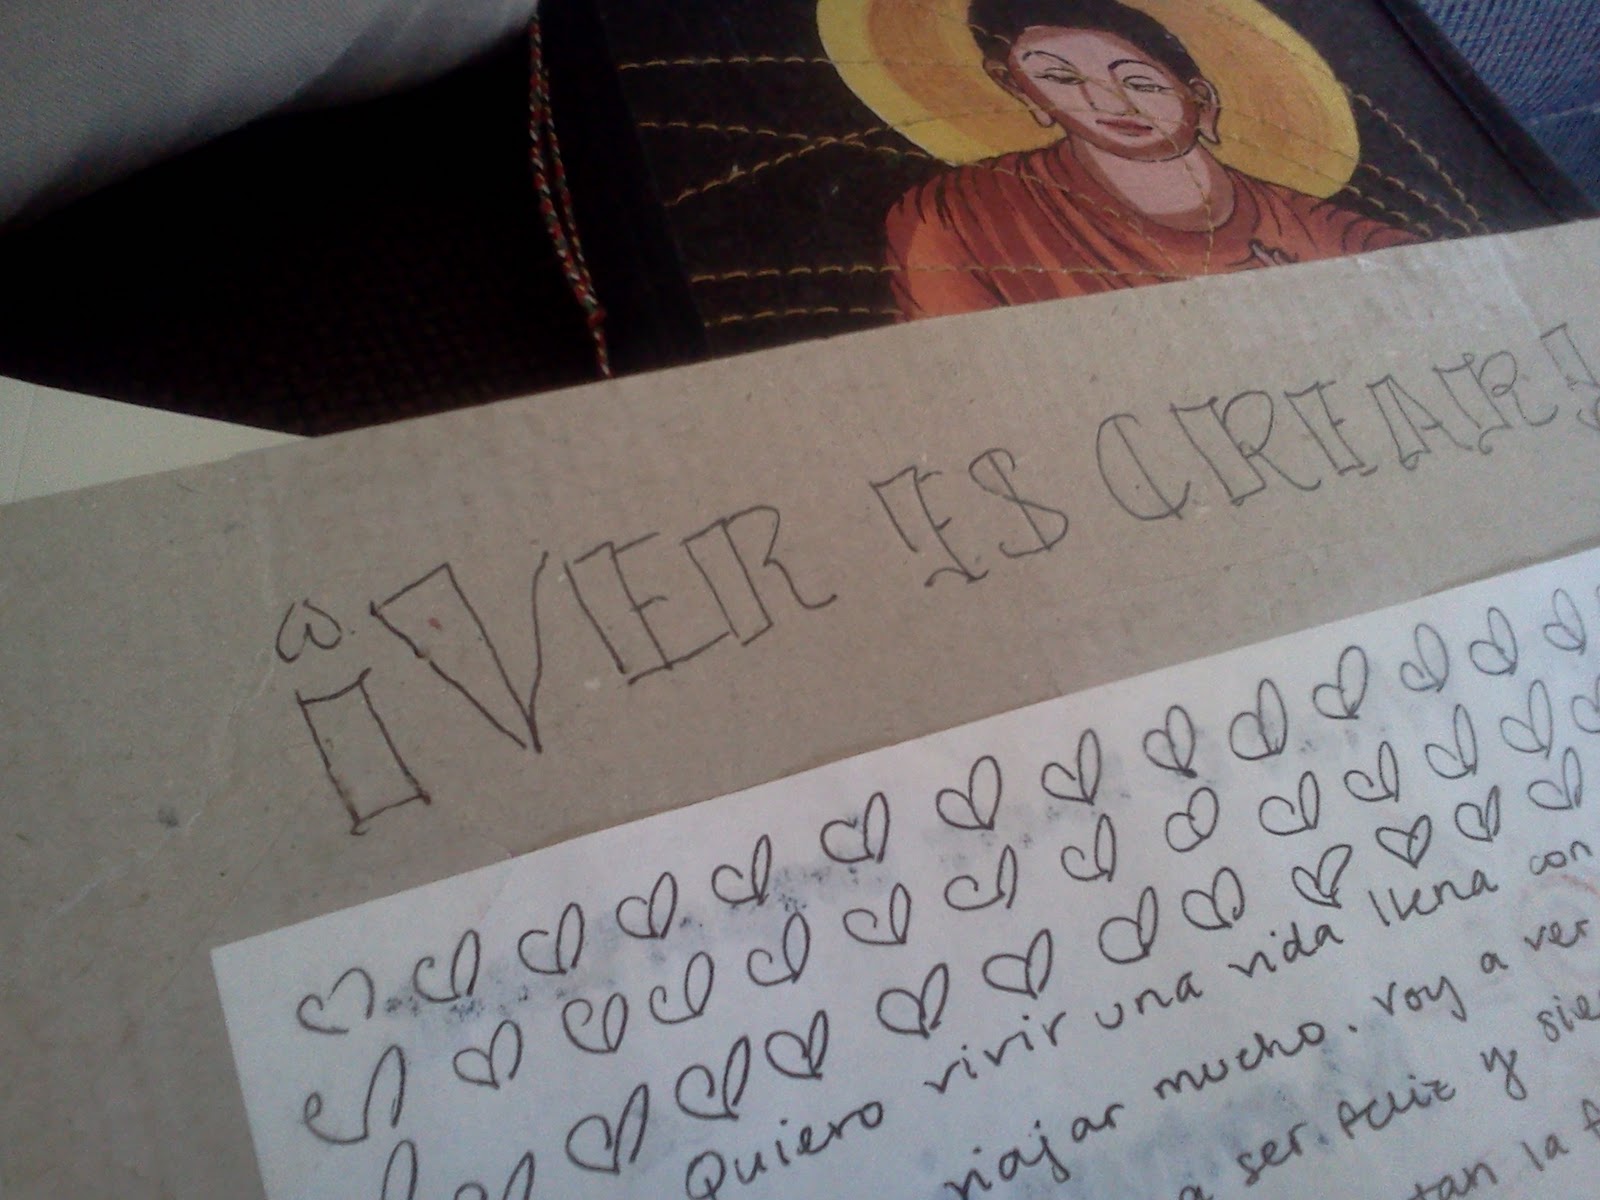 ¡VER ES CREAR!
Quiero vivir una vida llena con
viajar mucho. voy a ver
a ser feliz y sie
tan la f